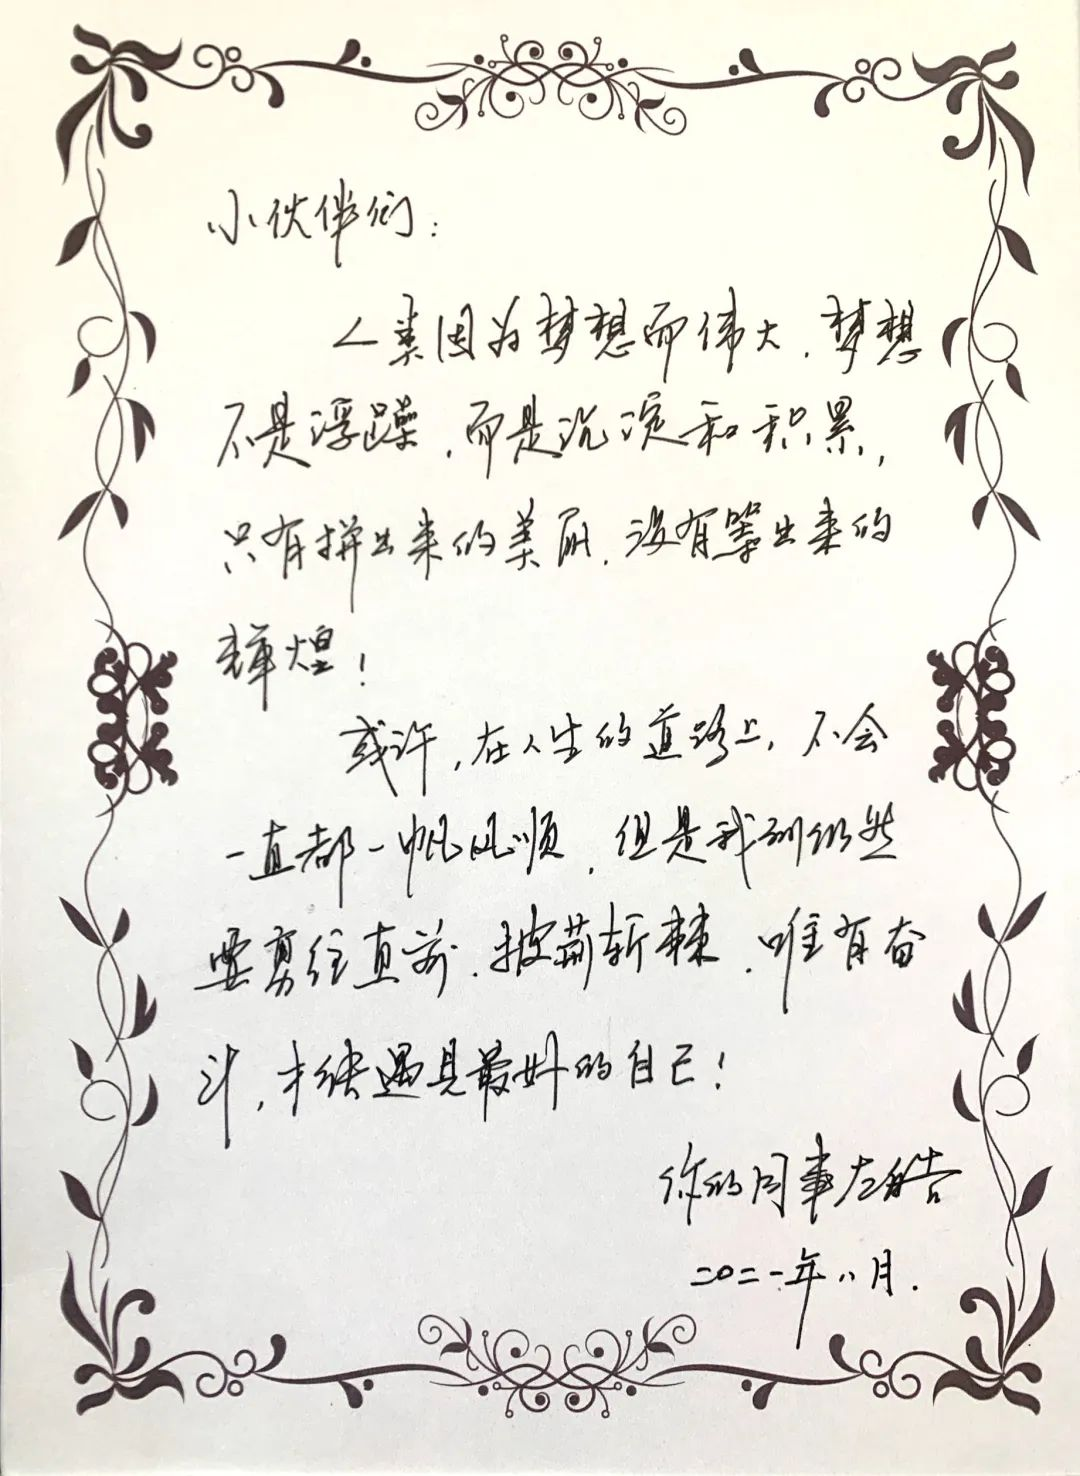 小伙伴们：
人类因为梦想而伟大，梦想
不是浮躁，而是沉淀和积累，
只有拼出来的美丽，没有等出来的
辉煌！
或许，在人生的道路上，不会
一直都一帆风顺，但是我们仍然
要勇往直前，披荆斩棘，唯有奋
斗，才能遇见最好的自己！
你的同事左皓
二〇二一年八月.